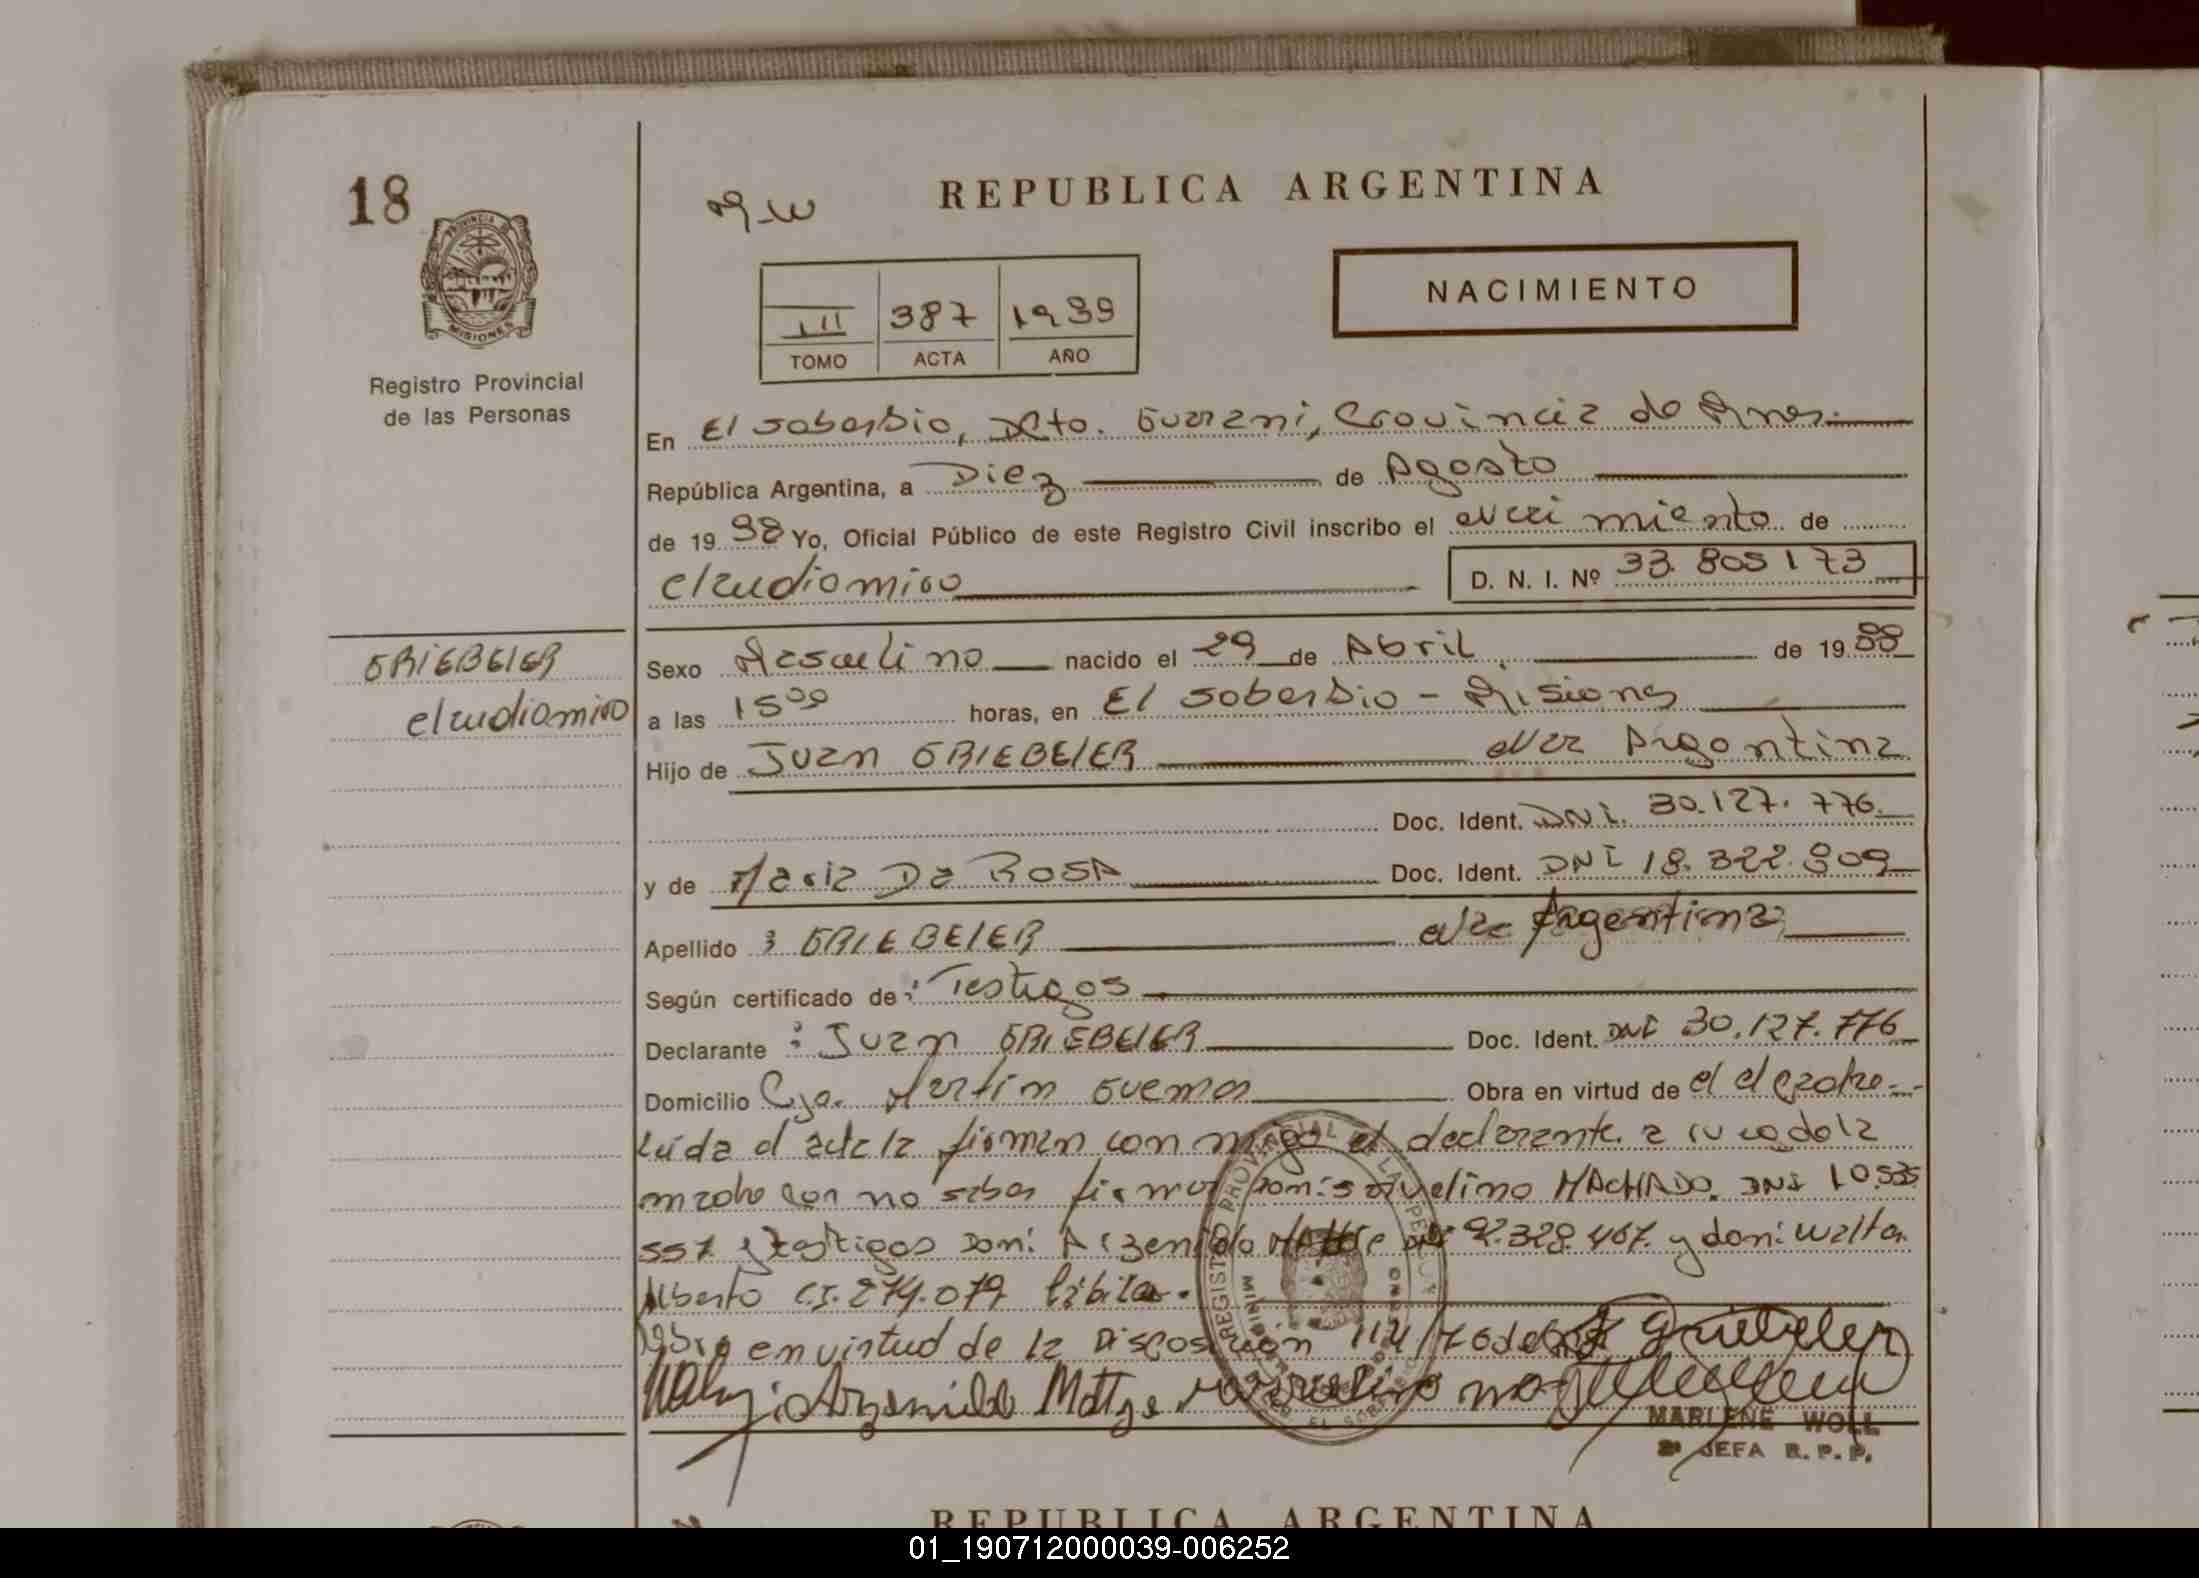 18
REPUBLICA ARGENTINA
PROVINCIA
MISIONES
Registro Provincial
de las Personas
NACIMIENTO
III 387 1989
TOMO ACTA AÑO
En El soberbio, Dpto. Guarani, Provincia de Mnes.
República Argentina, a Diez de Agosto
de 19 Yo, Oficial Público de este Registro Civil inscribo el Naci miento de
claudiomiro D. N. I. Nº 33.805173
GRIEBELER
claudiomiro
Sexo Masculino nacido el 29 de Abril de 19 88
a las 15 00 horas, en El soberbio - Misiones
Hijo de Juan GRIEBELER Nac Argentina
Doc. Ident. DNI. 30.127.776.
y de Maria Da ROSA Doc. Ident. DNI 18.322.909
Apellido : GRIEBELER Nac Argentina
Según certificado de : Testigos
Declarante : Juan GRIEBELER Doc. Ident. DNI 30.127.776
Domicilio Pje. Martin Guemes Obra en virtud de el el padre
Leida el acta la firman con migo el declarante a ruego de la
madre por no saber firmar Don: MACHADO. DNI 10.535
557 y testigos Don: Arzenildo DNI 92.328.467. y don: Walter
Alberto C.I. 274.079
Obra en virtud de la Disposicion 114/
Arzenildo Mattje
REGISTRO PROVINCIAL DE LAS PERSONAS
EL SOBERBIO
MARLENE WOLL
JEFA R. P. P.
REPUBLICA ARGENTINA
01_190712000039-006252